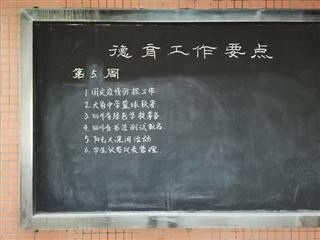 德育工作要点
第5周
1. 国庆疫情防控工作.
2. 大邑中学篮球联赛
3. 四川省绿色学校筹备
4. 四川省书法测试报名.
5. 阳光大课间活动
6. 学生仪容仪表管理.